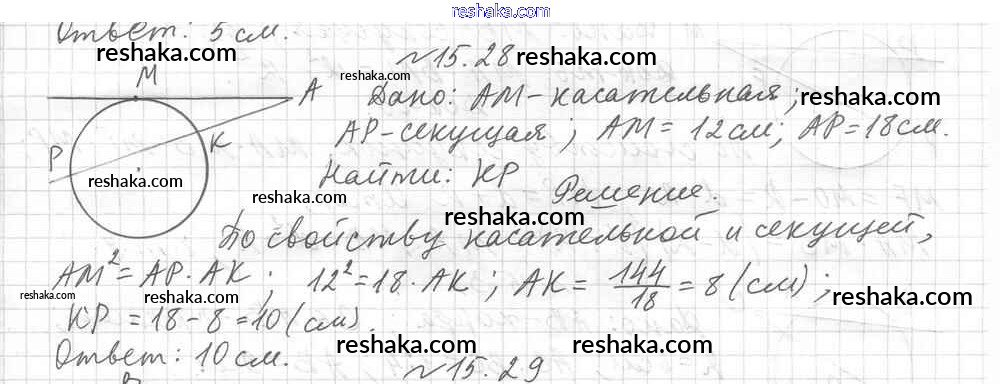 www.reshaka.com
Ответ: 5 см.
reshaka.com
№15.28 reshaka.com
reshaka.com
M
A
Дано: AM - касательная;
reshaka.com
P
K
AP - секущая; AM = 12 см; AP = 18 см.
reshaka.com
Найти: KP
reshaka.com
Решение.
reshaka.com
По свойству касательной и секущей,
AM² = AP · AK; 12² = 18 · AK; AK = 144/18 = 8 (см);
reshaka.com reshaka.com reshaka.com
KP = 18 - 8 = 10 (см).
Ответ: 10 см.
reshaka.com reshaka.com
№15.29